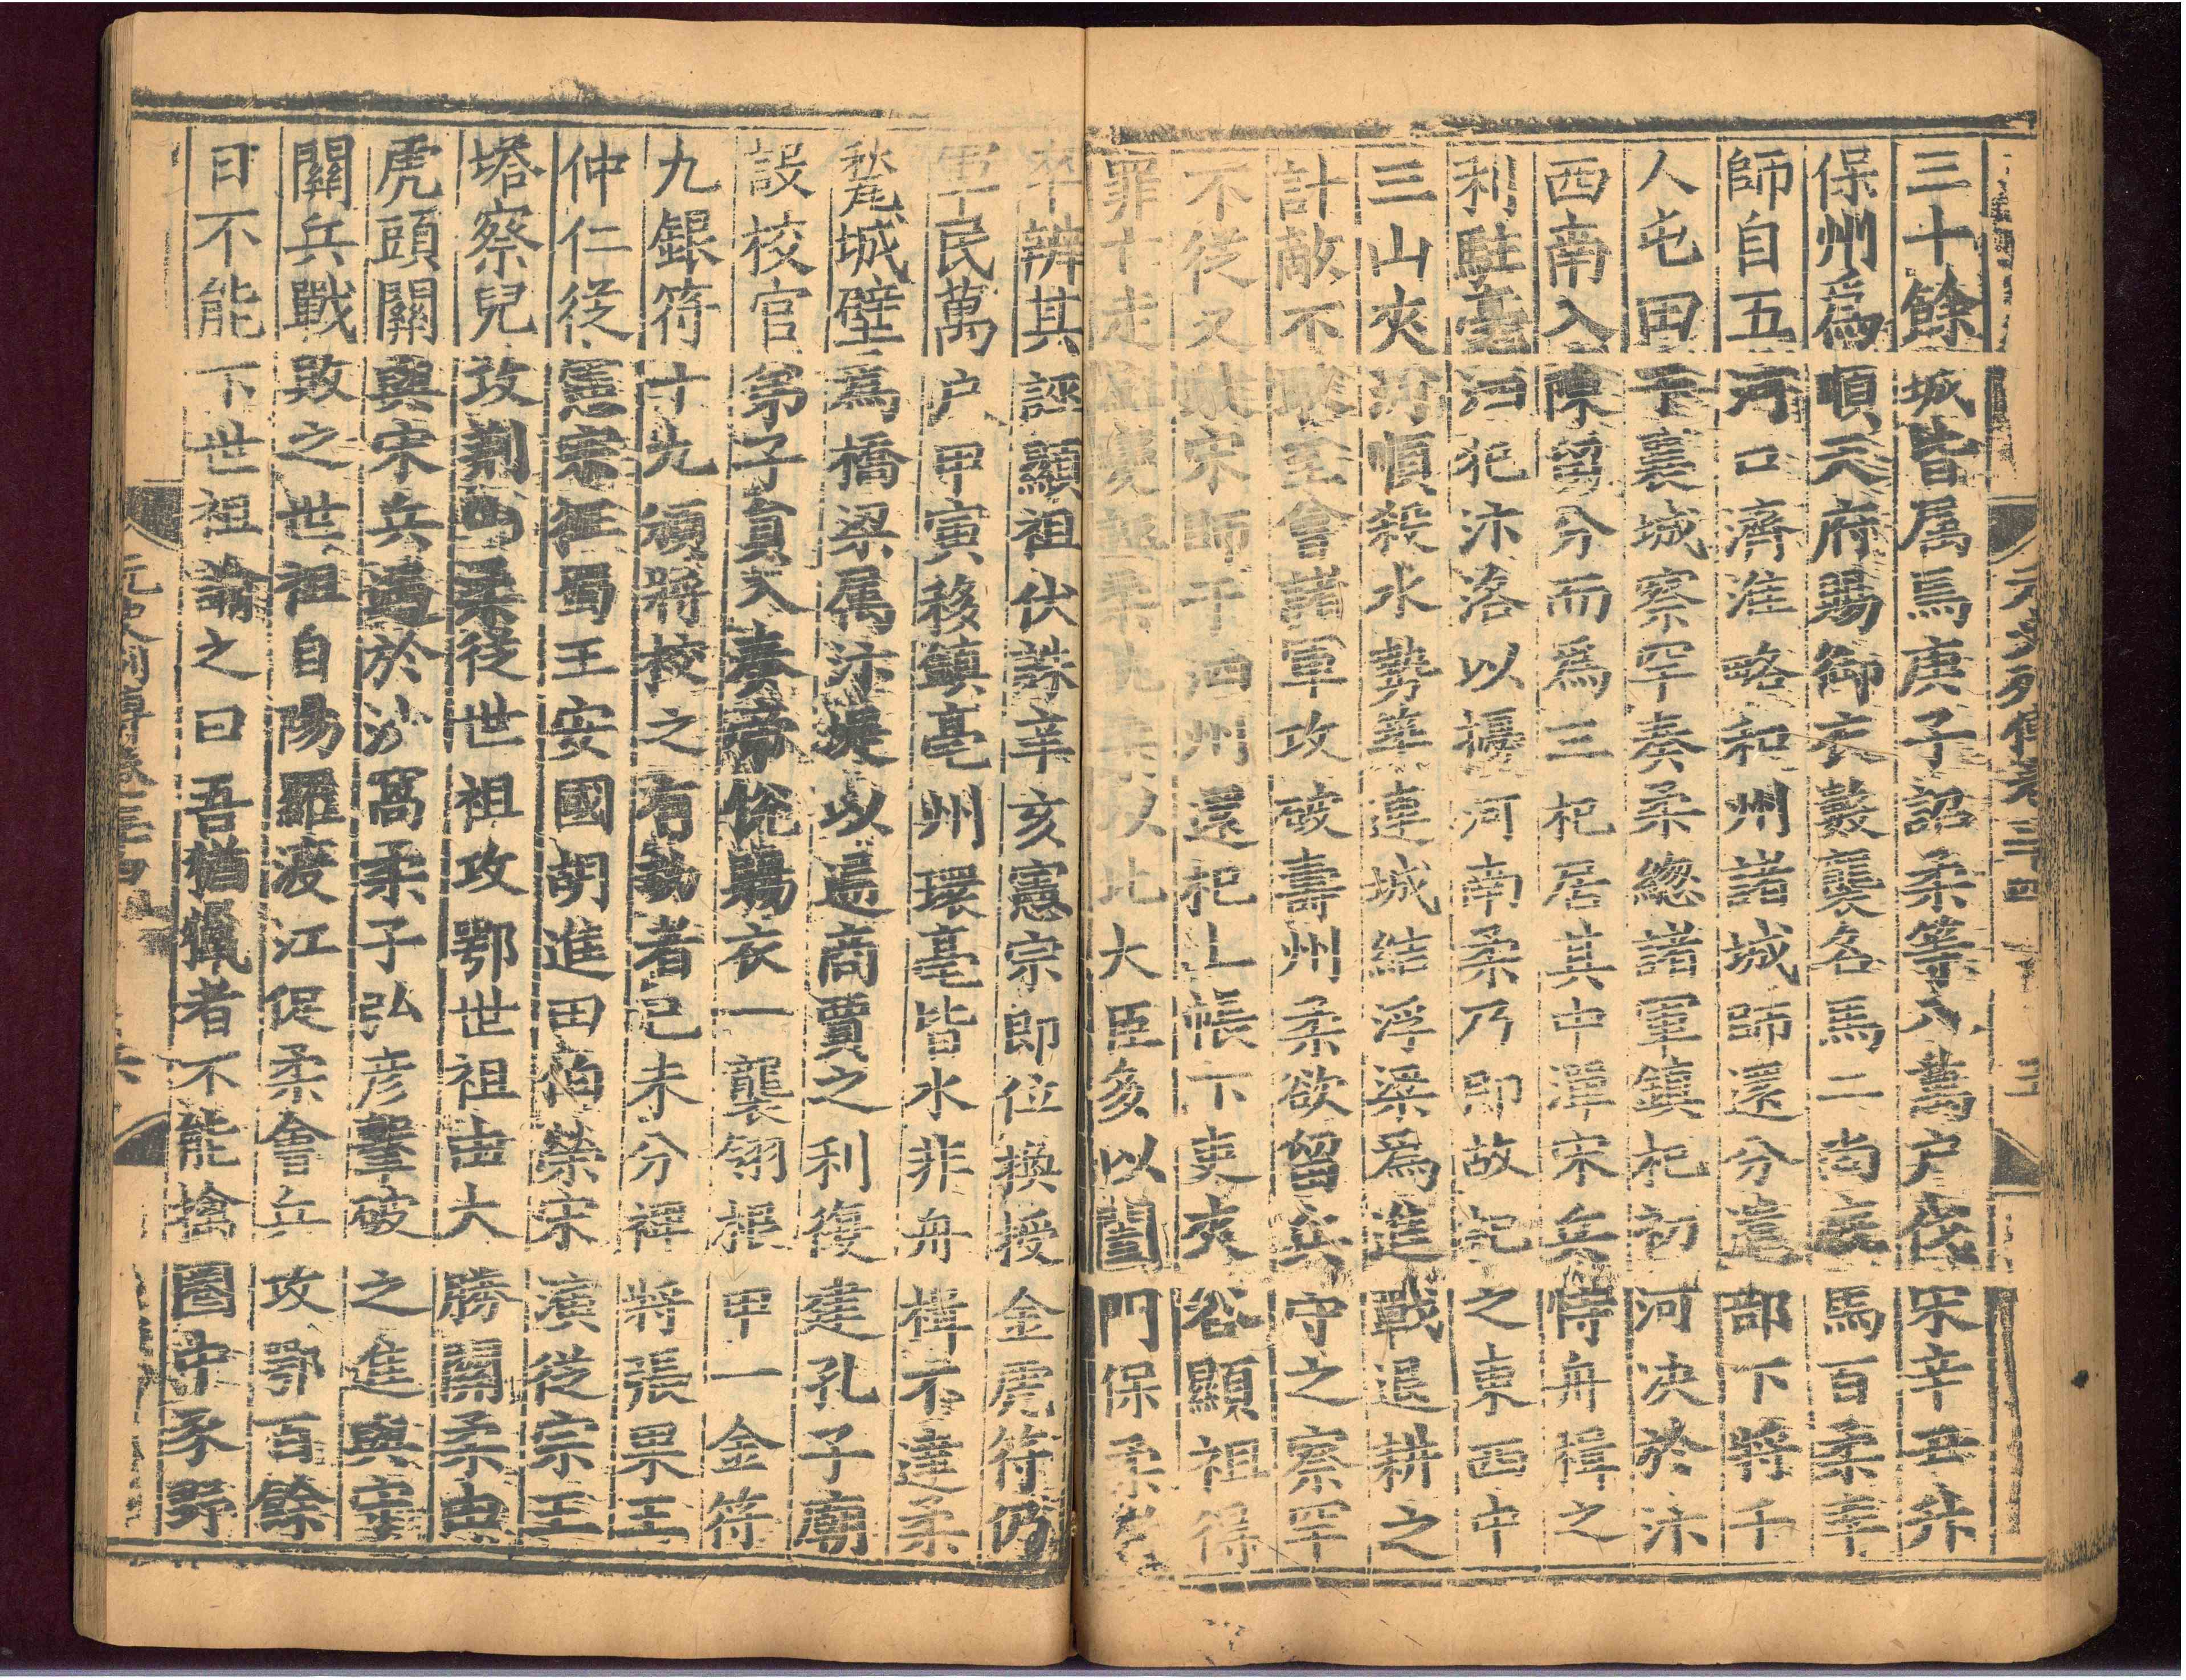 三十餘城皆属焉庚子詔柔等八萬户伐宋辛丑升
保州爲順天府賜御衣數襲名馬二尚廐馬百柔率
師自五河口濟淮略和州諸城師還分遣部下將千
人屯田于襄城察罕奏柔緫諸軍鎮杞初河决於汴
西南入陳留分而爲三杞居其中潬宋兵恃舟楫之
利駐亳泗犯汴洛以擾河南柔乃即故杞之東西中
三山夾河順殺水勢築連城結浮梁爲進戰退耕之
計敵不敢至會諸軍攻破壽州柔欲留兵守之察罕
不從又敗宋師于泗州還杞上帳下吏夾谷顯祖得
罪亡走上變誣柔執柔以北大臣多以闔門保柔者
卒辨其誣顯祖伏誅辛亥憲宗即位換授金虎符仍
軍民萬户甲寅移鎮亳州環亳皆水非舟楫不達柔
甃城壁爲橋梁属汴堤以通商賈之利復建孔子廟
設校官弟子員入奏帝恱賜衣一襲翎根甲一金符
九銀符十九頒將校之有功者己未分禆將張果王
仲仁從憲宗征蜀王安國胡進田伯榮宋演從宗王
塔察兒攻荆山柔從世祖攻鄂世祖由大勝關柔由
虎頭關與宋兵遇於沙窩柔子弘彦擊破之進與守
關兵戰敗之世祖自陽羅渡江促柔會兵攻鄂百餘
日不能下世祖諭之曰吾猶獵者不能擒圈中豕野
元史列傳卷三十四